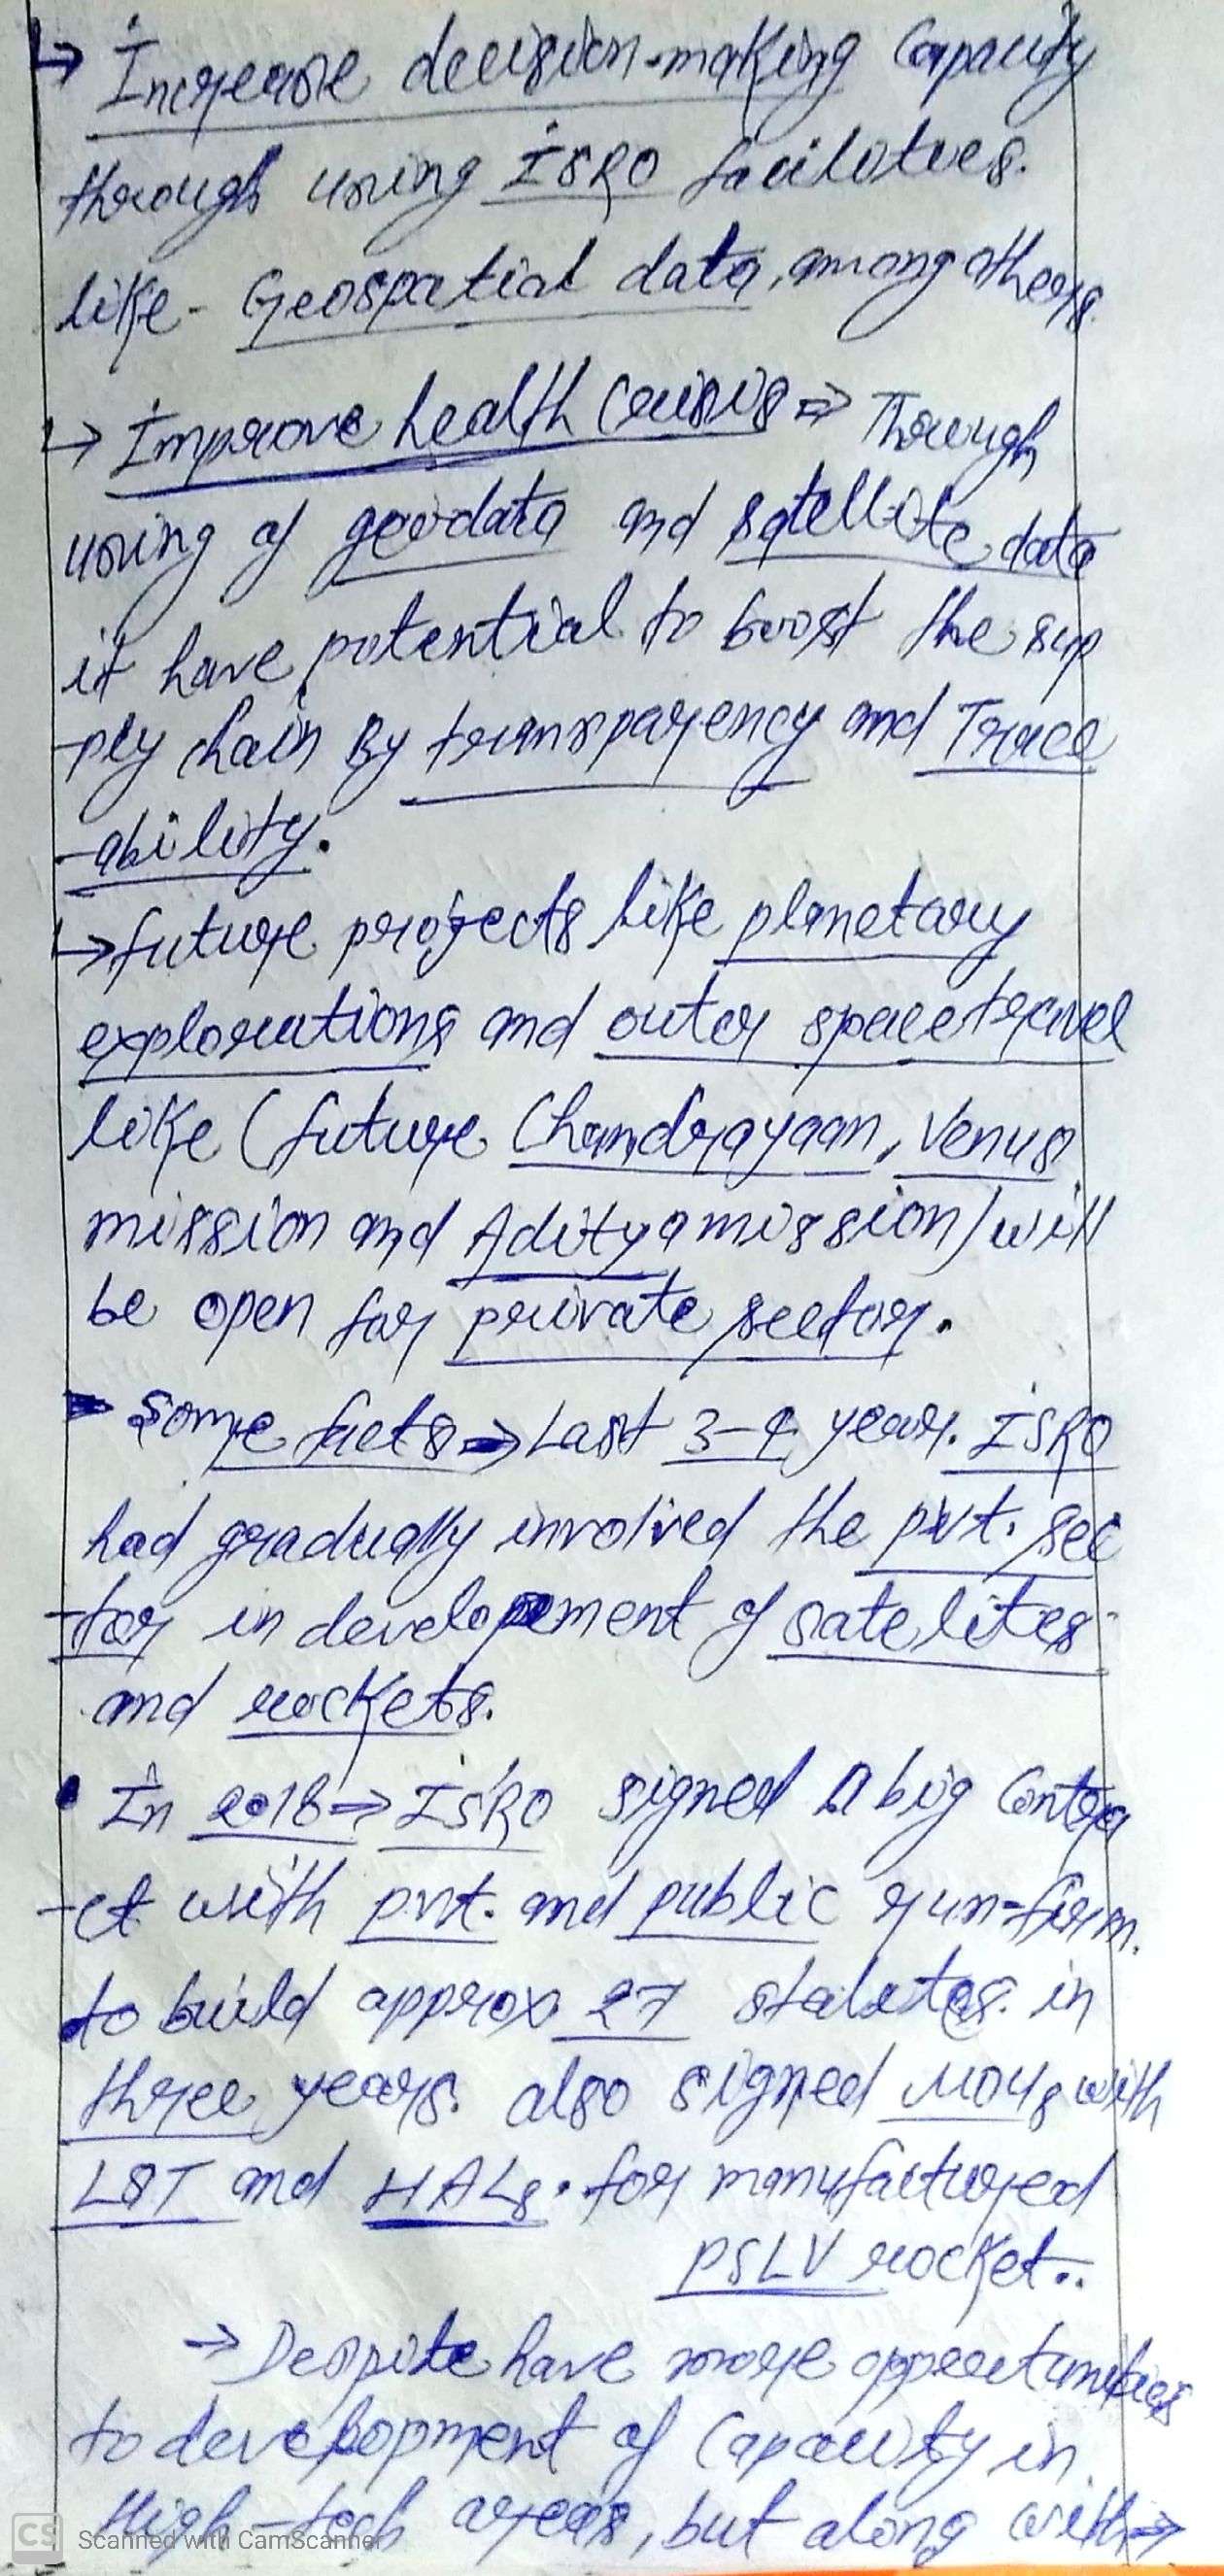 ↳ Increase decision-making Capacity
through using ISRO facilities.
like - Geospatial data, among others.
↳ Improve health Crisis ⇒ Through
using of geodata and satellite data
it have potential to boost the sup
-ply chain By transparency and Trace
-ability.
↳ future projects like planetary
explorations and outer space travel
like (future Chandrayaan, Venus
mission and Aditya mission) will
be open for private sector.
Some facts ⇒ Last 3-4 year. ISRO
had gradually involved the pvt. sec
-tor in development of satelites
and rockets.
• In 2018 ⇒ ISRO signed A big Contra
-ct with pvt. and public run-firm.
to build approx 27 in
three years. also signed MOUs with
L&T and HALs. for manufactured
PSLV rocket..
→ Despite have more opportunities
to development of Capacity in
High-tech areas, but along with ⇒
CS Scanned with CamScanner